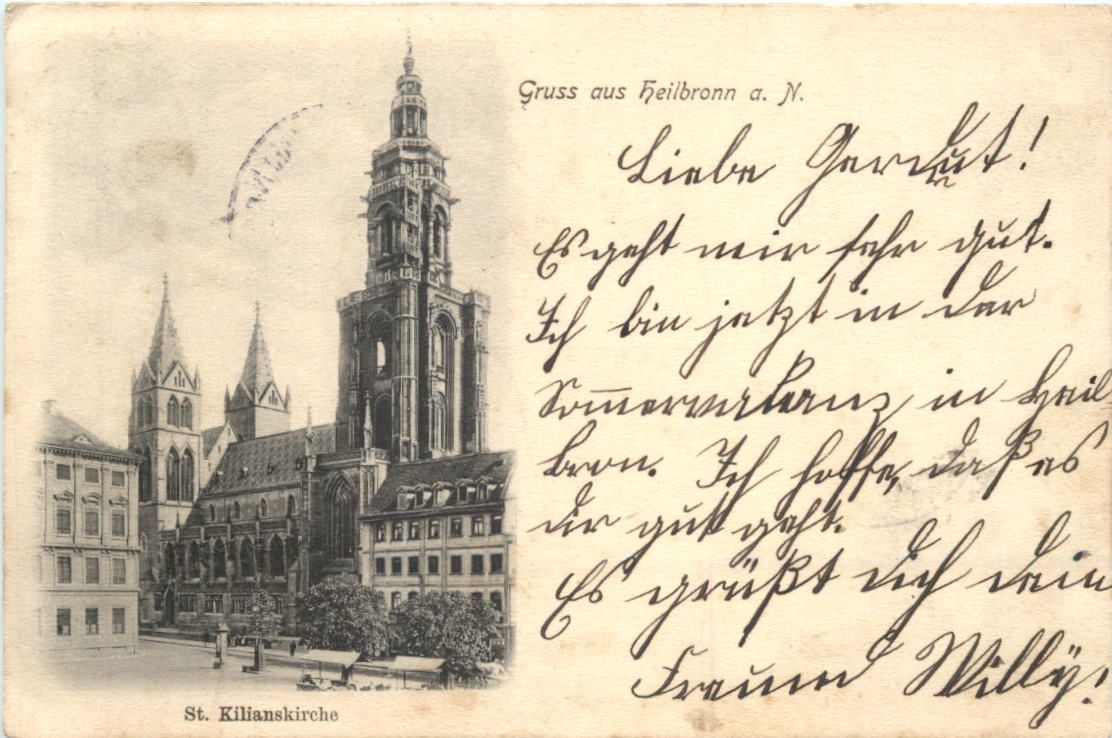 Gruss aus Heilbronn a. N.
Liebe Gerdrut!
Es geht mir sehr gut.
Ich bin jetzt in der
Sommervakanz in Heil-
bron. Ich hoffe, daß es
dir gut geht.
Es grüßt dich dein
Freund Willy!
St. Kilianskirche